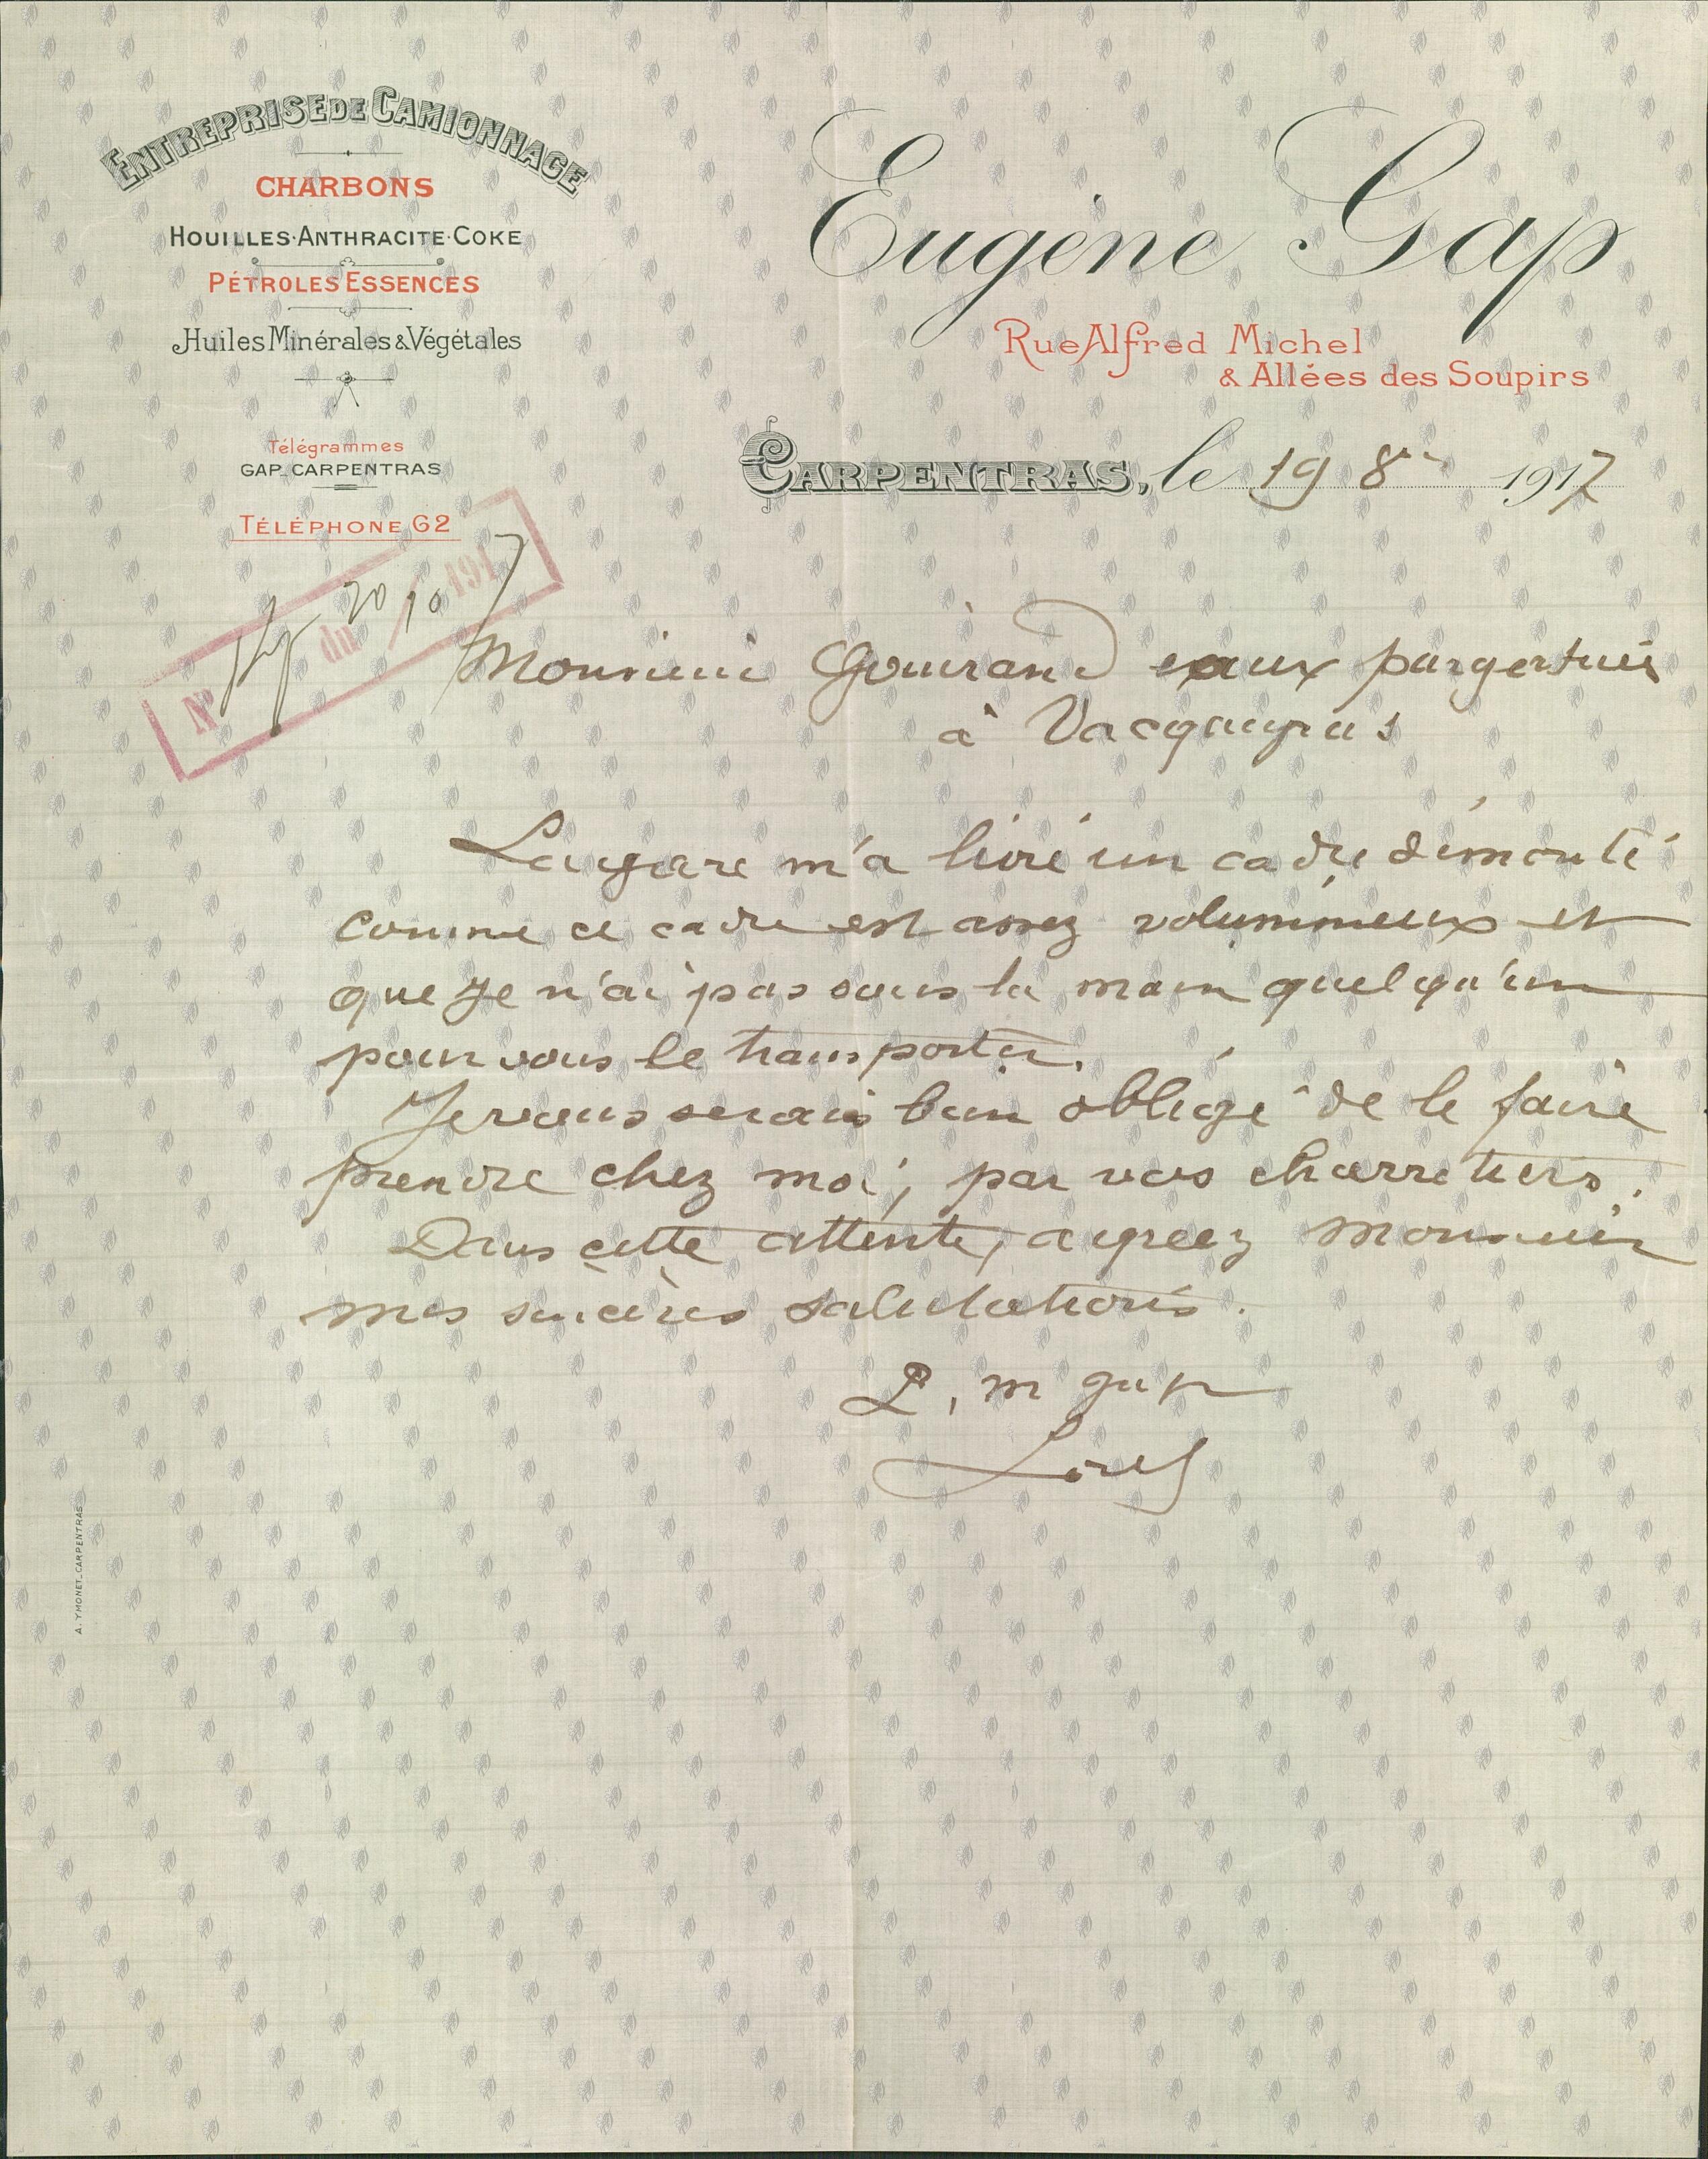 ENTREPRISE DE CAMIONNAGE
CHARBONS
HOUILLES·ANTHRACITE·COKE
PÉTROLES ESSENCES
Huiles Minérales & Végétales
Télégrammes
GAP_CARPENTRAS
TÉLÉPHONE 62
Eugène Gap
Rue Alfred Michel
& Allées des Soupirs
CARPENTRAS, le 19 8re 1917
N° du 20/10 1917
Monsieur Gouirand eaux purgatives
à Vacqueyras
La gare m'a livré un cadre démonté
comme ce cadre est assez volummineux et
que je n'ai pas sous la main quelqu'un
pour vous le transporter.
Je vous serais bien obligé de le faire
prendre chez moi, par vos charretiers.
Dans cette attente, agréez Monsieur
mes sincères salutations.
P. m gap
A. THONET_CARPENTRAS